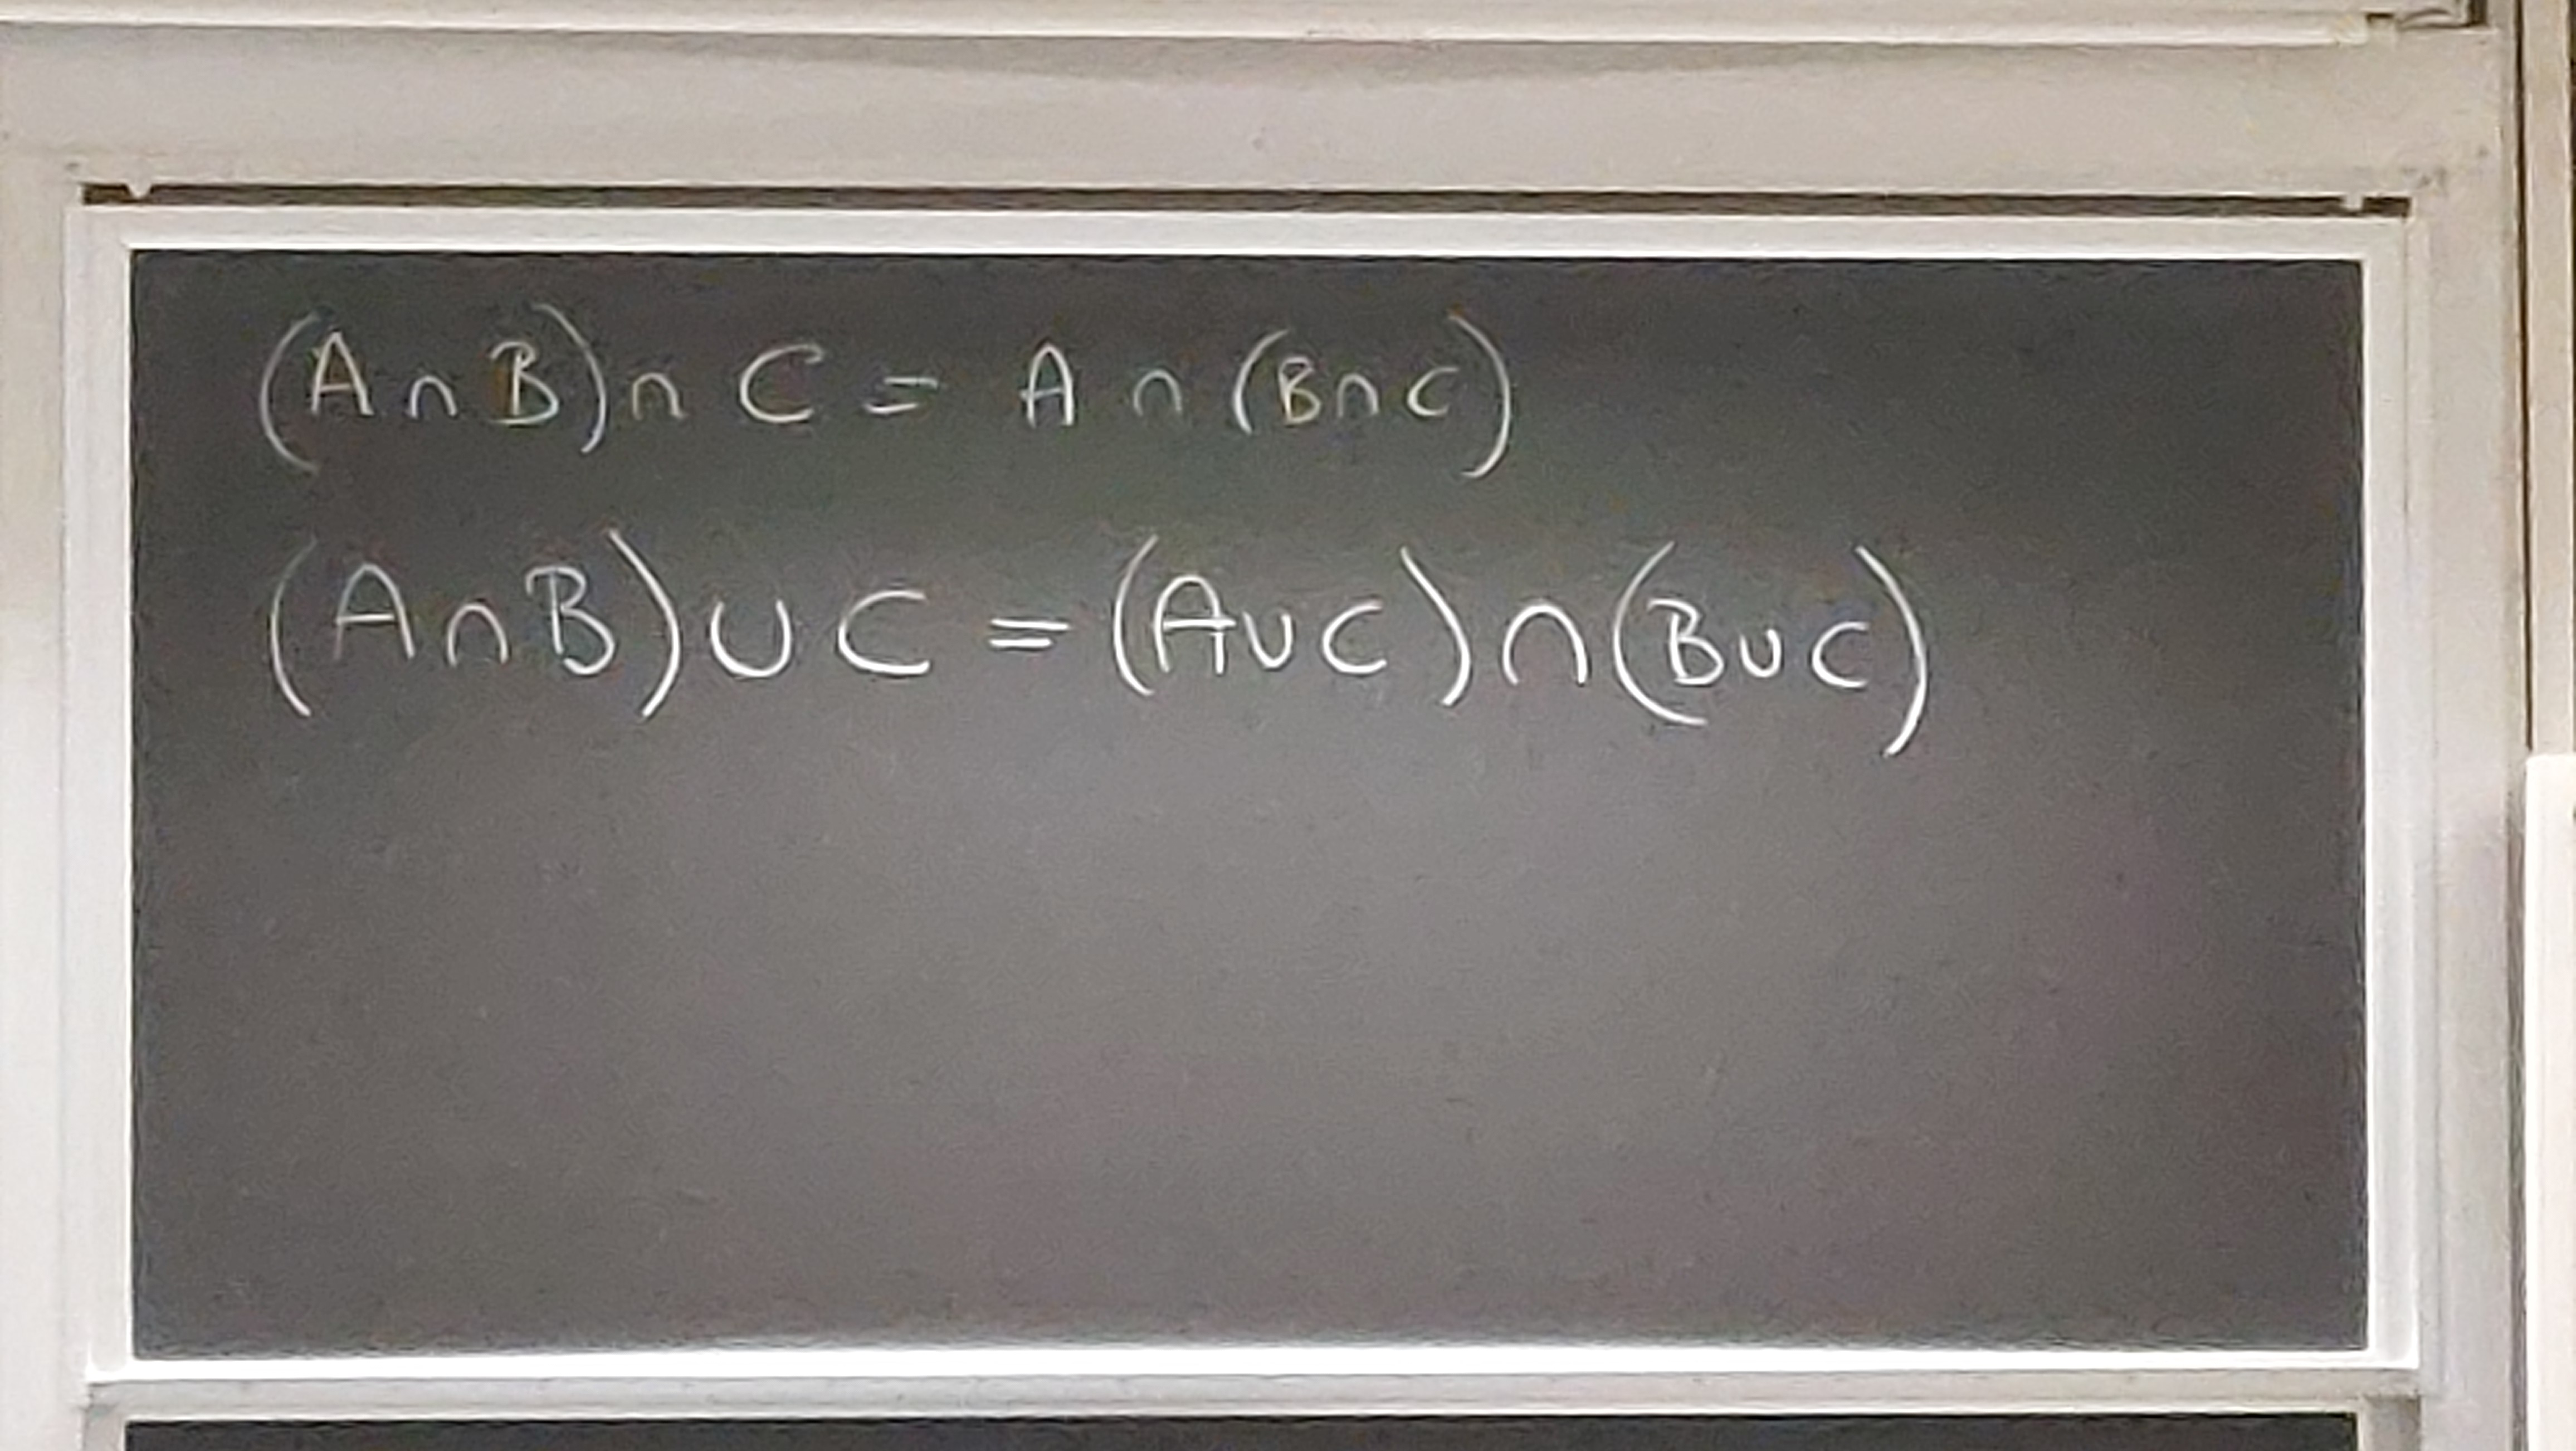 (A∩B)∩C = A∩(B∩C)
(A∩B)∪C = (A∪C)∩(B∪C)